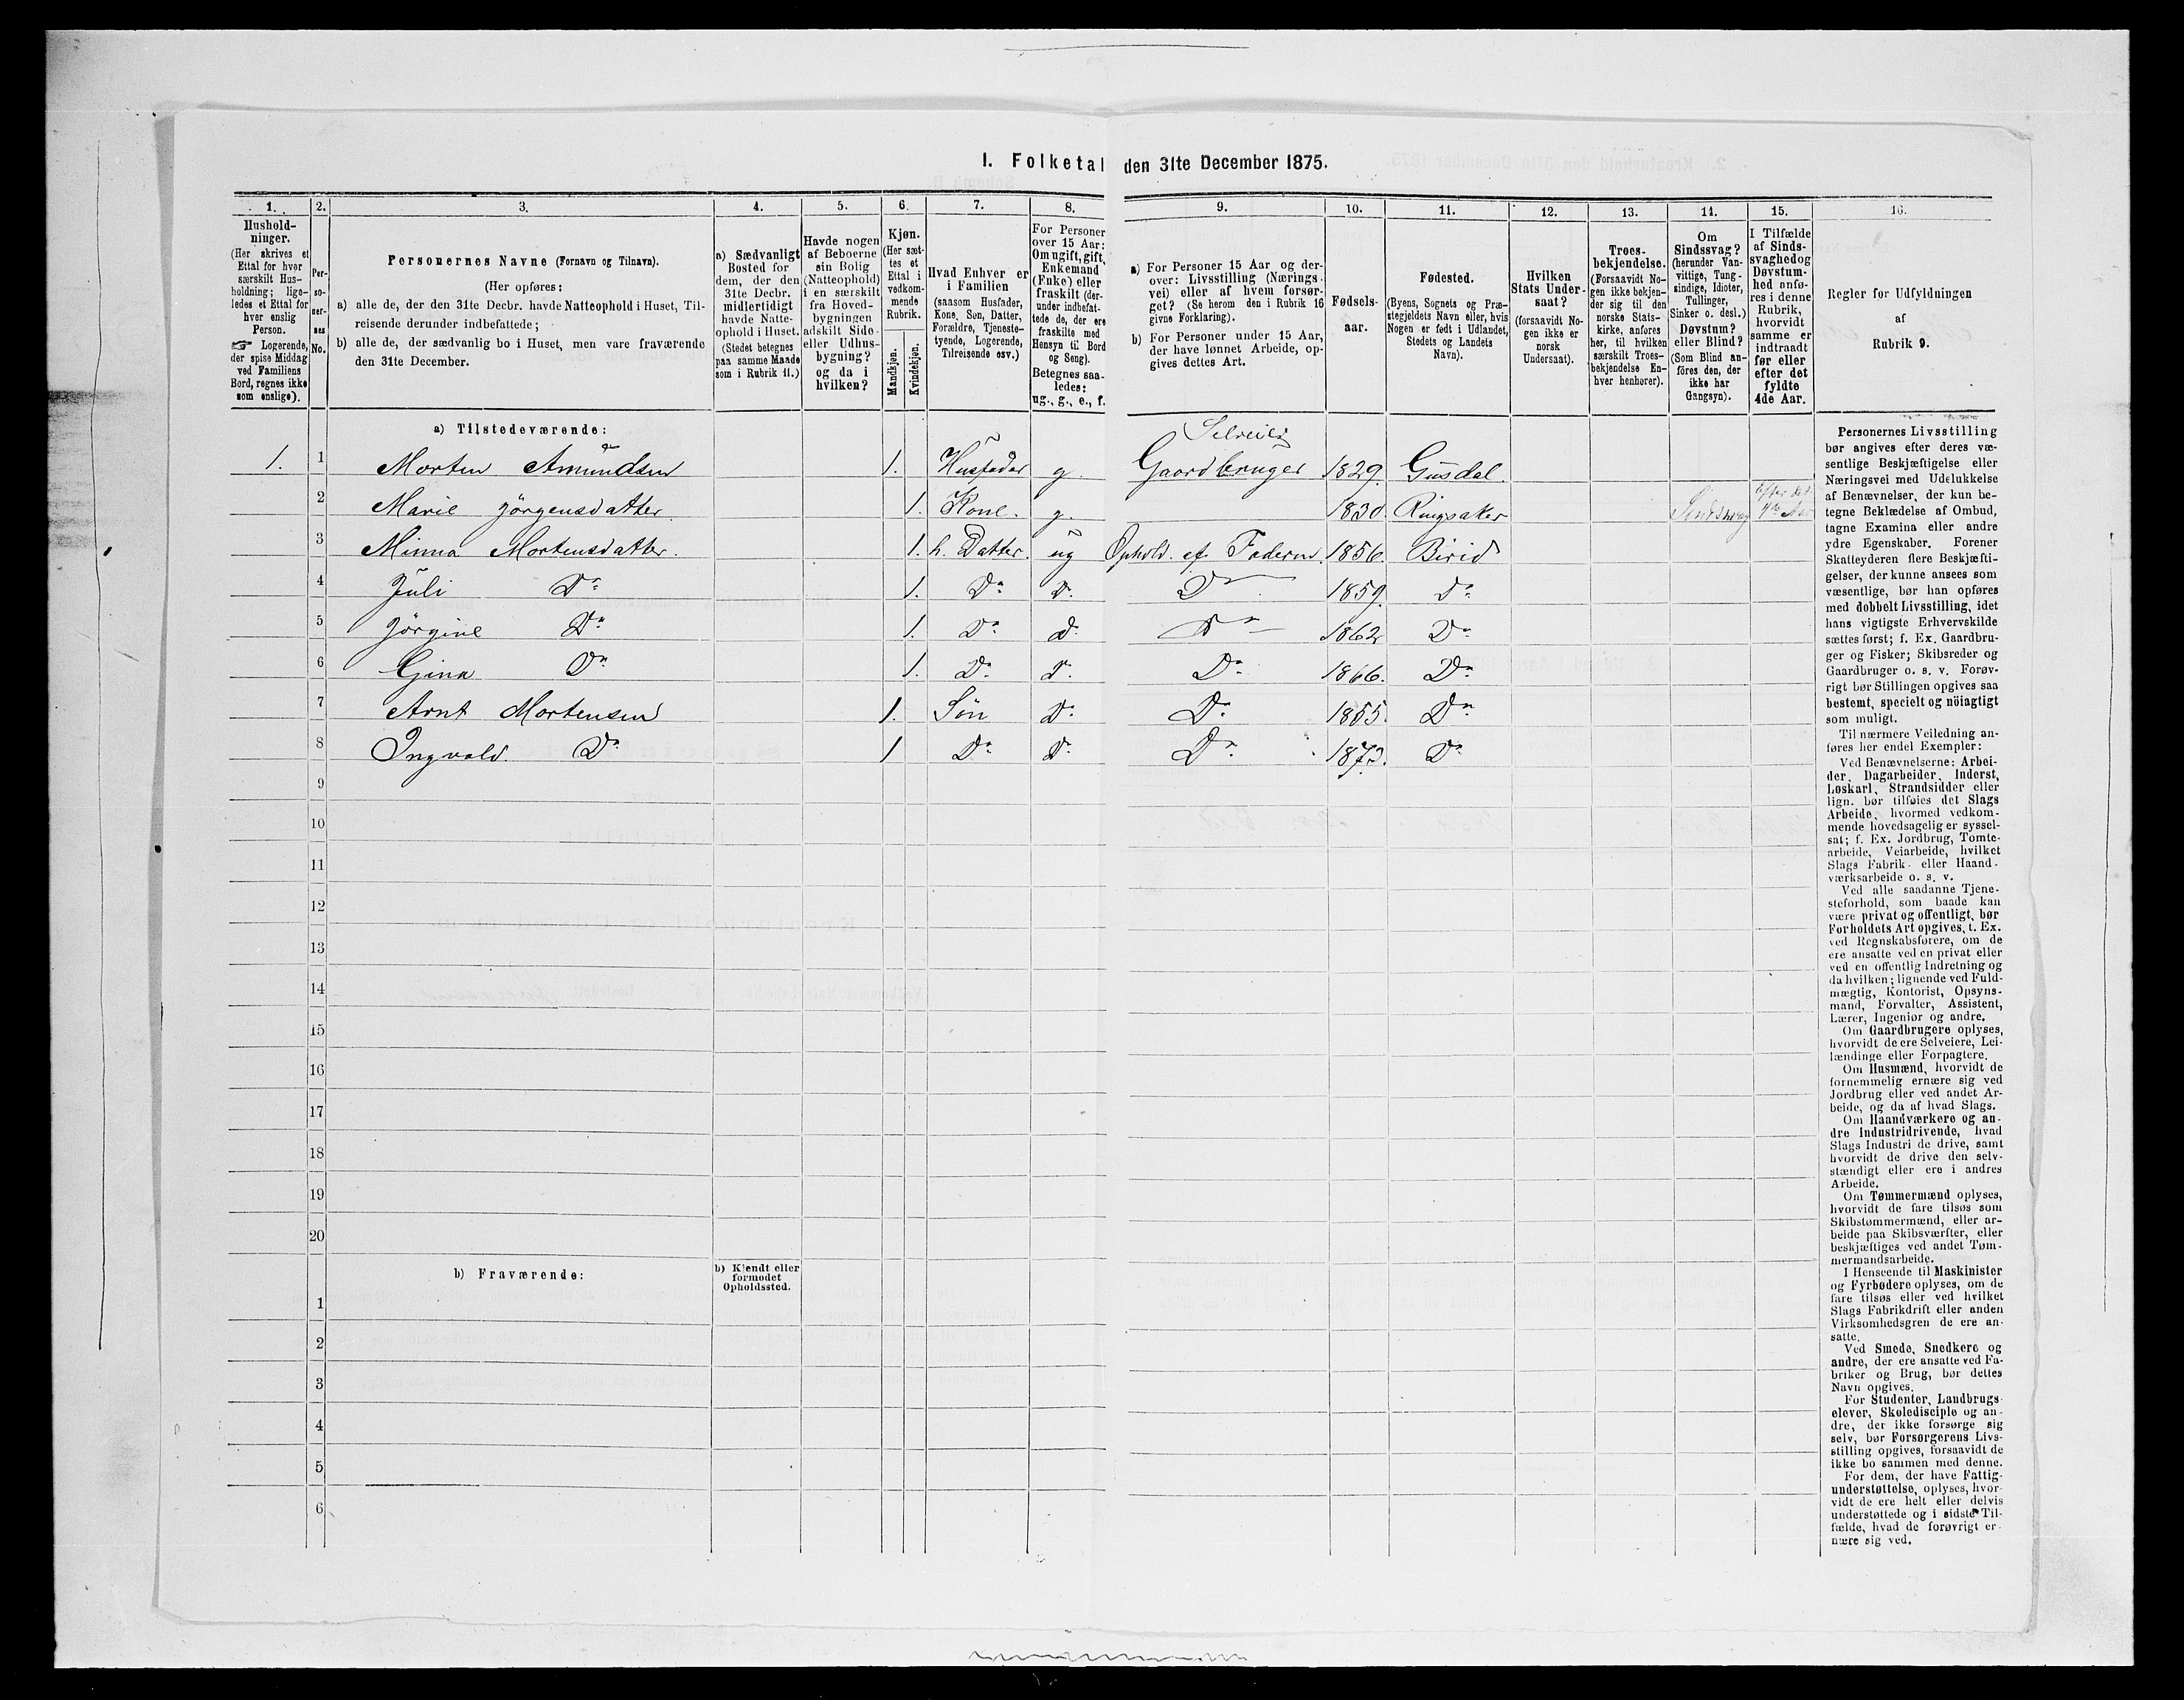 1. Folketal den 31te December 1875.
1. 2. 3. 4. 5. 6. 7. 8. 9. 10. 11. 12. 13. 14. 15. 16.
Hushold-
ninger.
(Her skrives et
Ettal for hver
særskilt Hus-
holdning; lige-
ledes et Ettal for
hver enslig
Person.
☞ Logerende,
der spise Middag
ved Familiens
Bord, regnes ikke
som enslige).
Per-
so-
ner-
nes
No.
Personernes Navne (Fornavn og Tilnavn).
(Her opføres:
a) alle de, der den 31te Decbr. havde Natteophold i Huset, Til-
reisende derunder indbefattede;
b) alle de, der sædvanlig bo i Huset, men vare fraværende
den 31te December.
a) Sædvanligt
Bosted for
dem, der den
31te Decbr.
midlertidigt
havde Natte-
ophold i Huset.
(Stedet betegnes
paa samme Maade
som i Rubrik 11.)
Havde nogen
af Beboerne
sin Bolig
(Natteophold)
i en særskilt
fra Hoved-
bygningen
adskilt Side-
eller Udhus-
bygning?
og da i
hvilken?
Kjøn.
(Her sæt-
tes et
Ettal i
vedkom-
mende
Rubrik.
Mandkjøn.
Kvindekjøn.
Hvad Enhver er
i Familien
(saasom Husfader,
Kone, Søn, Datter,
Forældre, Tjeneste-
tyende, Logerende,
Tilreisende osv.)
For Personer
over 15 Aar:
Om ugift, gift,
Enkemand
(Enke) eller
fraskilt (der-
under indbefat-
tede de, der ere
fraskilte med
Hensyn til Bord
og Seng).
Betegnes saa-
ledes:
ug., g., e., f.
a) For Personer 15 Aar og der-
over: Livsstilling (Nærings-
vei) eller af hvem forsør-
get? (Se herom den i Rubrik 16
givne Forklaring).
b) For Personer under 15 Aar,
der have lønnet Arbeide, op-
gives dettes Art.
Fødsels-
aar.
Fødested.
(Byens, Sognets og Præ-
stegjeldets Navn eller, hvis
Nogen er født i Udlandet,
Stedets og Landets
Navn).
Hvilken
Stats Under-
saat?
(forsaavidt No-
gen ikke er
norsk
Undersaat).
Troes-
bekjendelse.
(Forsaavidt No-
gen ikke bekjen-
der sig til den
norske Stats-
kirke, anføres
her, til hvilken
særskilt Troes-
bekjendelse En-
hver henhører).
Om
Sindssvag?
(herunder Van-
vittige, Tung-
sindige, Idioter,
Tullinger,
Sinker o. desl.)
Døvstum?
eller Blind?
(Som Blind an-
føres den, der
ikke har
Gangsyn).
I Tilfælde
af Sinds-
svaghed og
Døvstum-
hed anfø-
res i denne
Rubrik,
hvorvidt
samme er
indtraadt
før eller
efter det
fyldte
4de Aar.
Regler for Udfyldningen
af
Rubrik 9.
a) Tilstedeværende:
Selveier
1. 1 Morten Amundsen 1. Husfader g. Gaardbruger 1829. Gusdal.
2 Marie Jörgensdatter. 1. Kone. g. 1830. Ringsaker Sindssvag Efter det 4de Aar
3 Minna Mortensdatter. 1. h. Datter. ug Ophold. af Faderen. 1856. Birid
4 Juli Do 1. Do D. Do 1859. Do
5 Jörgine Do 1. Do D. Do 1862 Do
6 Gina Do 1. Do D. Do 1866. Do
7 Arnt Mortensen 1. Sön D. Do 1855. Do
8 Ingvald. Do 1 Do D. Do 1873. Do
9
10
11
12
13
14
15
16
17
18
19
20
b) Fraværende:
b) Kjendt eller
formodet
Opholdssted.
1
2
3
4
5
6
Personernes Livsstilling
bør angives efter deres væ-
sentlige Beskjæftigelse eller
Næringsvei med Udelukkelse
af Benævnelser, der kun be-
tegne Beklædelse af Ombud,
tagne Examina eller andre
ydre Egenskaber. Forener
Skatteyderen flere Beskjæfti-
gelser, der kunne ansees som
væsentlige, bør han opføres
med dobbelt Livsstilling, idet
hans vigtigste Erhvervskilde
sættes først; f. Ex. Gaardbru-
ger og Fisker; Skibsreder og
Gaardbruger o. s. v. Forøv-
rigt bør Stillingen opgives saa
bestemt, specielt og nöiagtigt
som muligt.
Til nærmere Veiledning an-
føres her endel Exempler:
Ved Benævnelserne: Arbei-
der, Dagarbeider, Inderst,
Løskarl, Strandsidder eller
lign. bør tilføies det Slags
Arbeide, hvormed vedkom-
mende hovedsagelig er syssel-
sat; f. Ex. Jordbrug, Tomte-
arbeide, Veiarbeide, hvilket
Slags Fabrik- eller Haand-
værksarbeide o. s. v.
Ved alle saadanne Tjene-
steforhold, som baade kan
være privat og offentligt, bør
Forholdets Art opgives, t. Ex.
ved Regnskabsførere, om de
ere ansatte ved en privat eller
ved en offentlig Indretning og
da hvilken; lignende ved Fuld-
mægtig, Kontorist, Opsyns-
mand, Forvalter, Assistent,
Lærer, Ingeniør og andre.
Om Gaardbrugere oplyses,
hvorvidt de ere Selveiere, Lei-
lændinge eller Forpagtere.
Om Husmænd, hvorvidt de
fornemmelig ernære sig ved
Jordbrug eller ved andet Ar-
beide, og da af hvad Slags.
Om Haandværkere og an-
dre Industridrivende, hvad
Slags Industri de drive, samt
hvorvidt de drive den selv-
stændigt eller ere i andres
Arbeide.
Om Tømmermænd oplyses,
hvorvidt de fare tilsøs som
Skibstømmermænd, eller ar-
beide paa Skibsværfter, eller
beskjæftiges ved andet Tøm-
mermandsarbeide.
I Henseende til Maskinister
og Fyrbødere oplyses, om de
fare tilsøs eller ved hvilket
Slags Fabrikdrift eller anden
Virksomhedsgren de ere an-
satte.
Ved Smede, Snedkere og
andre, der ere ansatte ved Fa-
briker og Brug, bør dettes
Navn opgives.
For Studenter, Landbrugs-
elever, Skoledisciple og an-
dre, der ikke forsørge sig
selv, bør Forsørgerens Livs-
stilling opgives, forsaavidt de
ikke bo sammen med denne.
For dem, der have Fattig-
understøttelse, oplyses, hvor-
vidt de ere helt eller delvis
understøttede og i sidste Til-
fælde, hvad de forøvrigt er-
nære sig ved.